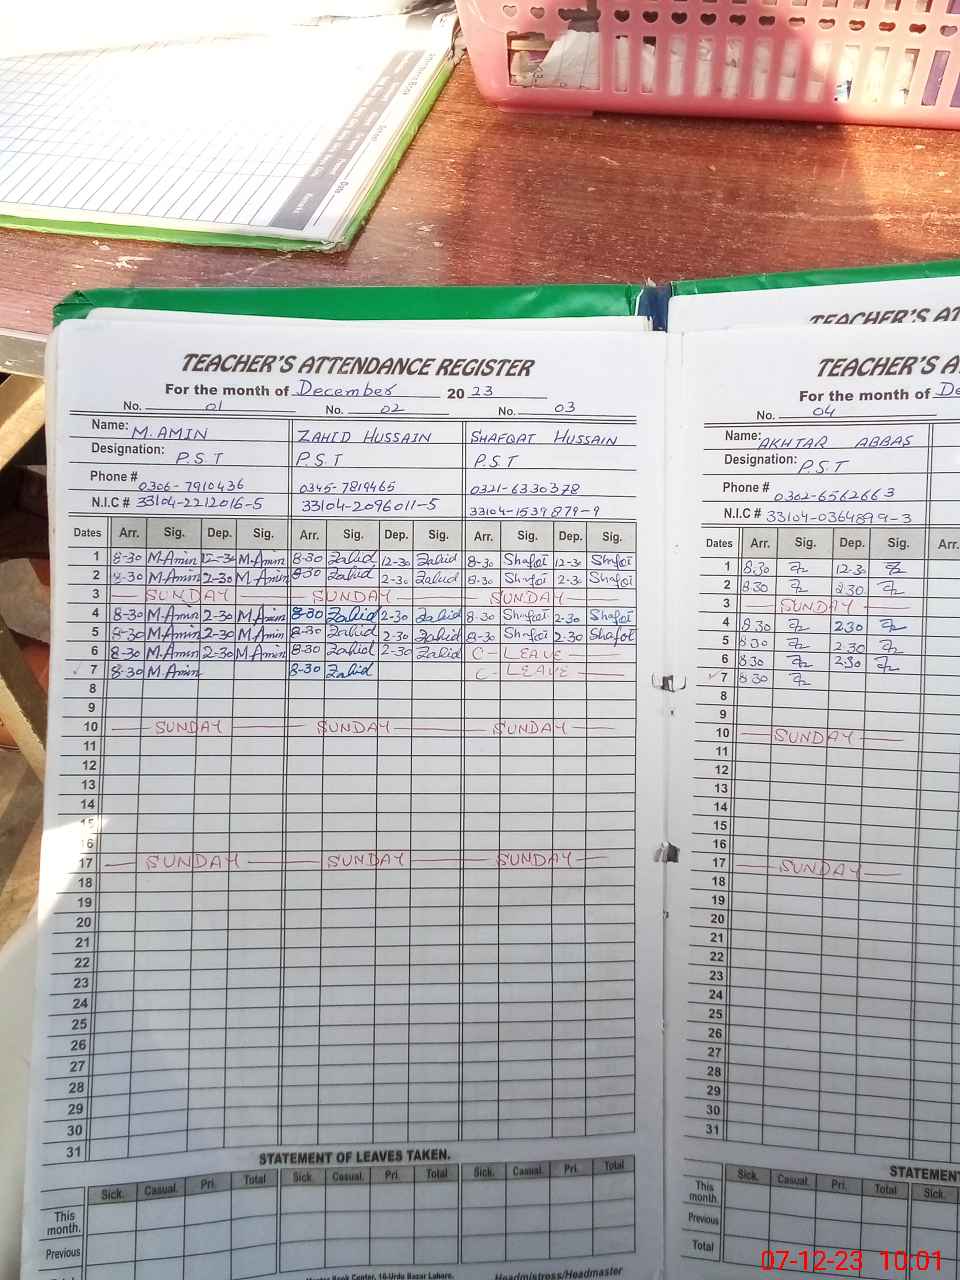 TEACHER'S ATTENDANCE REGISTER
For the month of December 2023
No. 01 No. 02 No. 03
Name: M. AMIN ZAHID HUSSAIN SHAFQAT HUSSAIN
Designation: P.S.T P.S.T P.S.T
Phone # 0306-7910436 0345-7819465 0321-6330378
N.I.C # 33104-2212016-5 33104-2096011-5 33104-1539879-9
Dates Arr. Sig. Dep. Sig. Arr. Sig. Dep. Sig. Arr. Sig. Dep. Sig.
1 8-30 M.Amin 12-30 M.Amin 8-30 Zahid 12-30 Zahid 8-30 Shafqi 12-30 Shafqi
2 8-30 M.Amin 2-30 M.Amin 8-30 Zahid 2-30 Zahid 8-30 Shafqi 2-30 Shafqi
3 SUNDAY SUNDAY SUNDAY
4 8-30 M.Amin 2-30 M.Amin 8-30 Zahid 2-30 Zahid 8-30 Shafqi 2-30 Shafqi
5 8-30 M.Amin 2-30 M.Amin 8-30 Zahid 2-30 Zahid 8-30 Shafqi 2-30 Shafqi
6 8-30 M.Amin 2-30 M.Amin 8-30 Zahid 2-30 Zahid C- LEAVE
7 8-30 M.Amin 8-30 Zahid C- LEAVE
8
9
10 SUNDAY SUNDAY SUNDAY
11
12
13
14
15
16
17 SUNDAY SUNDAY SUNDAY
18
19
20
21
22
23
24
25
26
27
28
29
30
31
STATEMENT OF LEAVES TAKEN.
Sick. Casual. Pri. Total Sick. Casual. Pri. Total Sick. Casual. Pri. Total
This month.
Previous
Book Center, 16-Urdu Bazar Lahore. Headmistress/Headmaster
TEACHER'S
For the month of
No. 04
Name: AKHTAR ABBAS
Designation: P.S.T
Phone # 0302-6562663
N.I.C # 33104-0364899-3
Dates Arr. Sig. Dep. Sig. Arr.
1 8.30 12-30
2 8.30 2.30
3 SUNDAY
4 8.30 2.30
5 8.30 2.30
6 8.30 2.30
7 8.30
8
9
10 SUNDAY
11
12
13
14
15
16
17 SUNDAY
18
19
20
21
22
23
24
25
26
27
28
29
30
31
STATEMENT
Sick. Casual. Pri. Total Sick.
This month.
Previous
Total
07-12-23 10:01